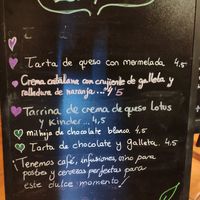 Tarta de queso con mermelada 4,5
Crema catalana con crujiente de galleta y
ralladura de naranja...4'5
Tarrina de crema de queso Lotus
y Kinder... 4,5
milhoja de chocolate blanco. 4,5
Tarta de chocolate y galleta. 4,5
¡Tenemos café, infusiones, vino para
postres y cervezas perfectas para
este dulce momento!